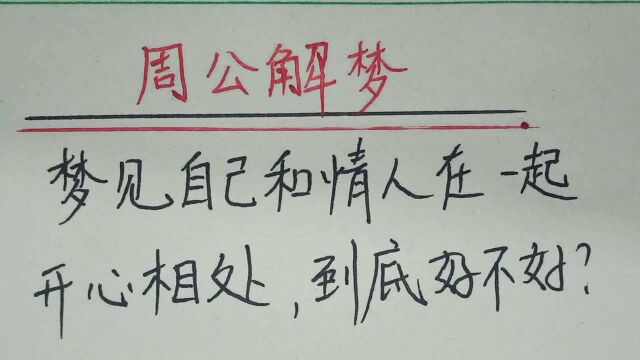 周公解梦
梦见自己和情人在一起
开心相处,到底好不好?